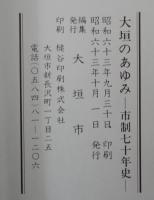 大垣のあゆみ―市制七十年史―
昭和六十三年九月三十日 印刷
昭和六十三年十月一日 発行
編集
発行 大垣市
印刷 樋谷印刷株式会社
大垣市新長沢町一丁目二五
電話(〇五八四)八一―一二〇六